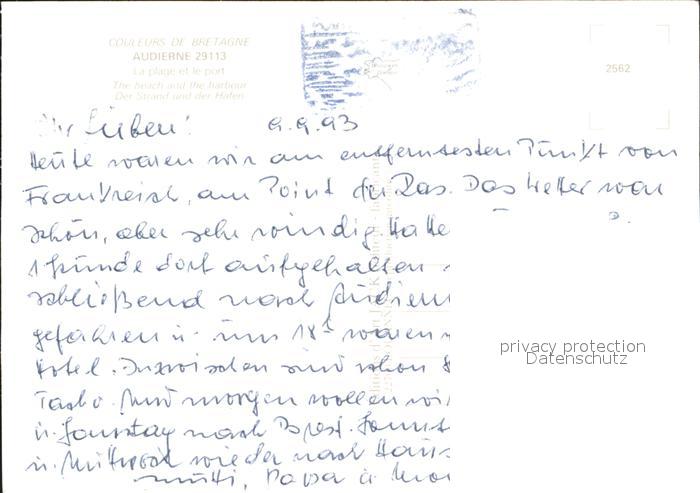 COULEURS DE BRETAGNE
AUDIERNE 29113
La plage et le port
The beach and the harbour
Der Strand und der Hafen
2562
Ihr Lieben! 9.9.93
Heute waren wir am entferntesten Punkt von
Frankreich, am Point du Ras. Das Wetter war
schön, aber sehr windig.
1 Stunde dort aufgehalten
schließend nach Audiern
gefahren u. um 18 waren
Hotel. Inzwischen sind schon 8
Tage. Und morgen wollen wir
u. Sonntag nach Brest.
u. Mittwoch wieder nach Haus
Mutti, Papa u.
privacy protection
Datenschutz